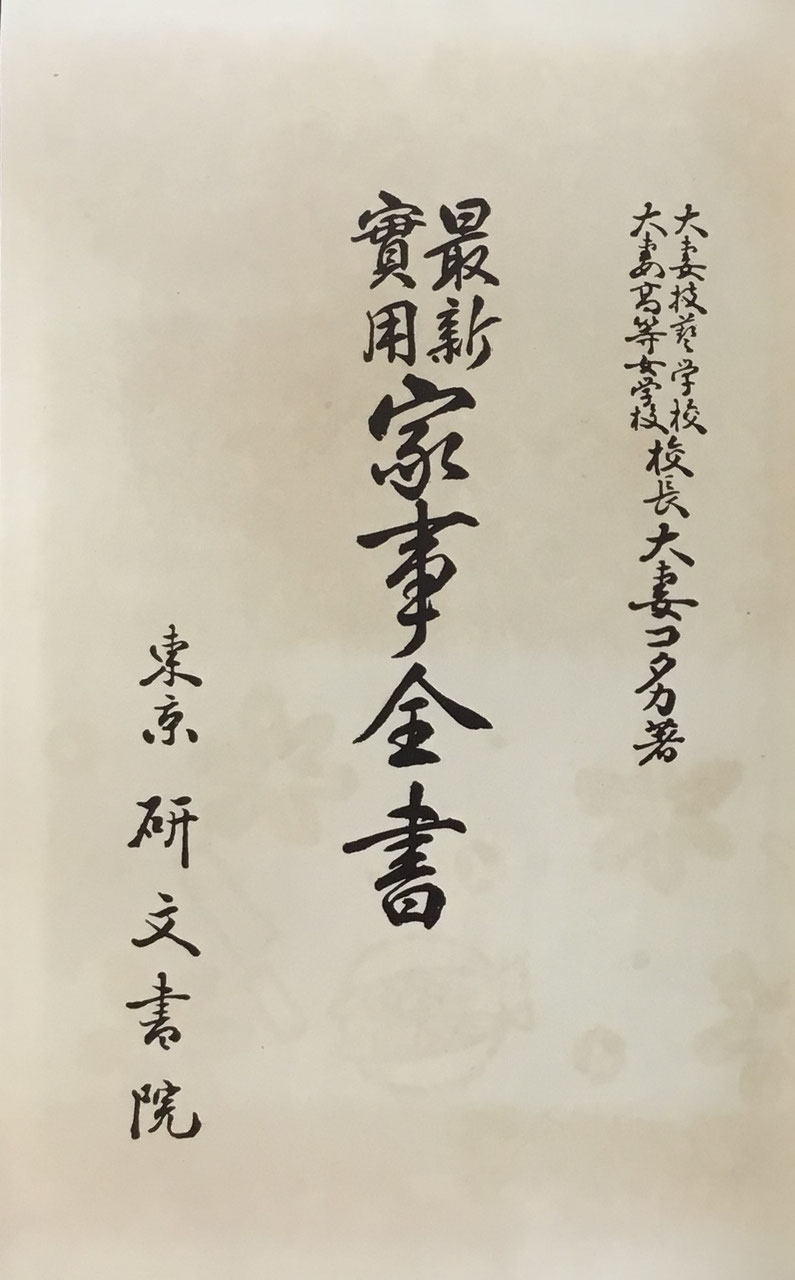 大妻技藝学校
大妻高等女学校
校長大妻コタカ著
最新
實用
家事全書
東京 研文書院